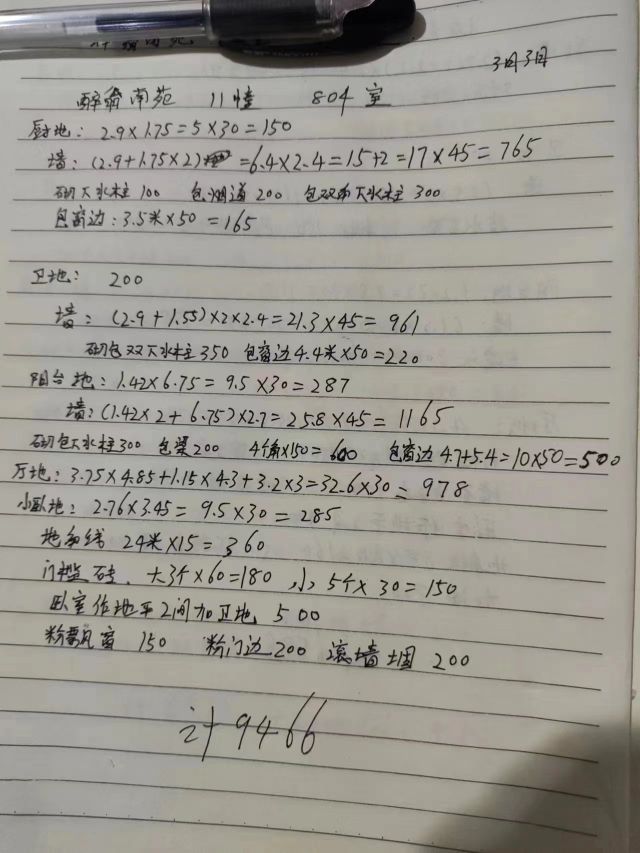 3月3日
醉翁南苑 11幢 804室
厨地：2.9×1.75=5×30=150
墙：(2.9+1.75×2)=6.4×2.4=15+2=17×45=765
砌下水柱100 包烟道200 包双下水柱300
包窗边：3.5米×50=165
卫地：200
墙：(2.9+1.55)×2×2.4=21.3×45=961
砌包双下水柱350 包窗边4.4米×50=220
阳台地：1.42×6.75=9.5×30=287
墙：(1.42×2+6.75)×2.7=25.8×45=1165
砌包下水柱300 包梁200 4个角×150=600 包窗边4.7+5.4=10×50=500
厅地：3.75×4.85+1.15×4.3+3.2×3=32.6×30=978
小卧地：2.76×3.45=9.5×30=285
地角线 24米×15=360
门槛砖．大3个×60=180 小5个×30=150
卧室作地平2间加卫地 500
粉飘窗 150 粉门边200 滚墙固 200
计9466